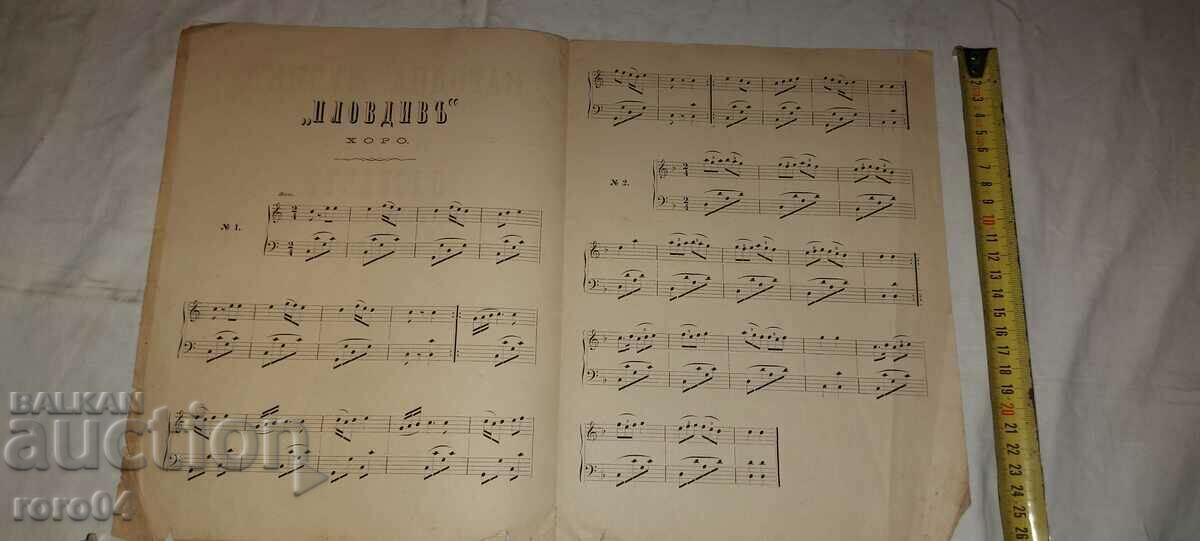 „ПЛОВДИВЪ“
ХОРО.
№ 1.
№ 2.
BALKAN
auction
roro04
2 3 4 5 6 7 8 9 10 11 12 13 14 15 16 17 18 19 20 21 22 23 24 25 26